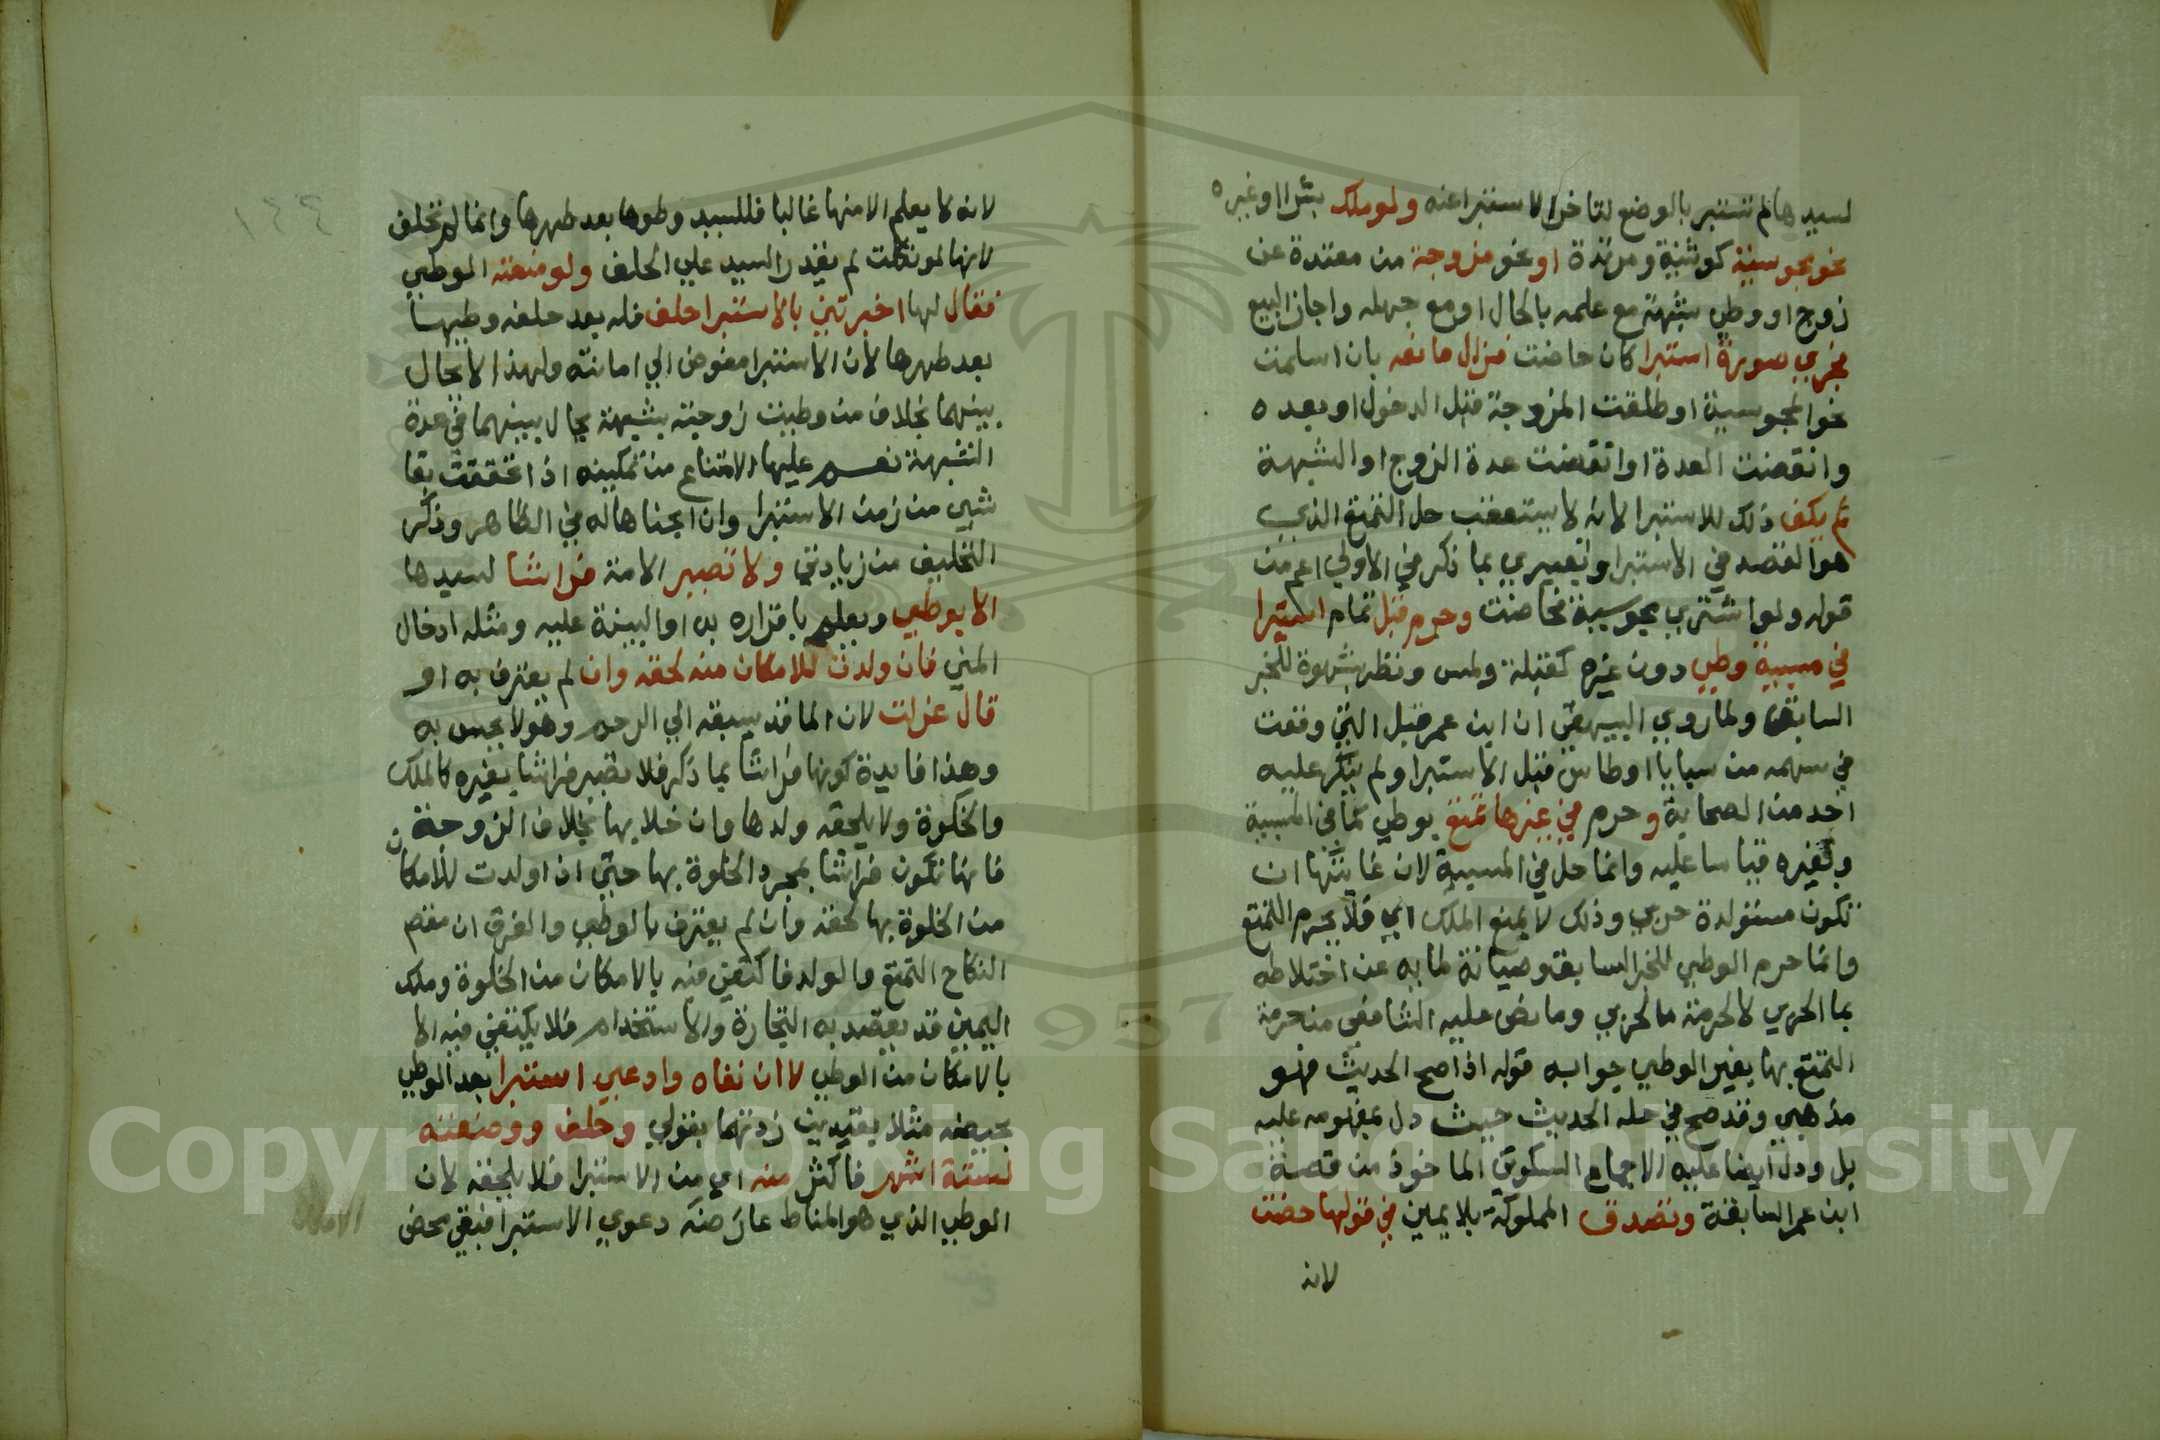 لسيدها لم تستبر بالوضع لتاخر الاستبرا عنه ولو ملك بشرا او غيره
نحو مجوسية كوثنية ومرتدة او نحو مزوجة من معتدة عن
زوج او وطي شبهة مع علمه بالحال او مع جهله واجاز البيع
فجري صورة استبرا كان حاضت فزال مانعه بان اسلمت
نحو المجوسية او طلقت المزوجة قبل الدخول او بعده
وانقضت العدة او انقضت عدة الزوج او الشبهة
لم يكف ذلك للاستبرا لانه لا يستعقب حل التمتع الذي
هو القصد في الاستبرا وتعبيري بما ذكر في الاولي اعم من
قوله ولو اشتري مجوسية فحاضت وحرم قبل تمام استبرا
في مسبية وطي دون غيره كقبلة ولمس ونظر بشهوة للخبر
السابق ولما روي البيهقي ان ابن عمر قبل التي وقعت
في سهمه من سبايا اوطاس قبل الاستبرا ولم ينكر عليه
احد من الصحابة وحرم في غيرها تمتع بوطي كما في المسبية
وبغيره قياسا عليه وانما حل في المسبية لان غايتها ان
تكون مستولدة حربي وذلك لا يمنع الملك اي فلا يحرم التمتع
وانما حرم الوطي للخبر السابق وصيانة لمايه عن اختلاطه
بما الحربي لا لحرمة ما لحربي وما نص عليه الشافعي من حرمة
التمتع بها بغير الوطي جوابه قوله اذا صح الحديث فهو
مذهبي وقد صح في حله الحديث حيث دل بمفهومه عليه
بل ودل ايضا عليه الاجماع السكوتي الماخوذ من قصة
ابن عمر السابقة وتصدق المملوكة بلا يمين في قولها حضت
لانه
لانه لا يعلم الا منها غالبا فللسيد وطوها بعد طهرها وانما لم تحلف
لانها لو نكلت لم يقدر السيد علي الحلف ولو منعته الوطي
فقال لها اخبرتني بالاستبرا حلف فله بعد حلفه وطيها
بعد طهرها لان الاستبرا مفوض الي امانته ولهذا لا يحال
بينهما بخلاف من وطيت زوجته بشبهة يحال بينهما في عدة
الشبهة نعم عليها الامتناع من تمكينه اذا تحققت بقا
شي من زمن الاستبرا وان ابحناها له في الظاهر وذكر
التحليف من زيادتي ولا تصير الامة فراشا لسيدها
الا بوطي ويعلم باقراره به او البينة عليه ومثله ادخال
المني فان ولدت للامكان منه لحقه وان لم يعترف به او
قال عزلت لان الما قد يسبقه الي الرحم وهو لا يحس به
وهذا فايدة كونها فراشا بما ذكر فلا تصير فراشا بغيره كالملك
والخلوة ولا يلحقه ولدها وان خلا بها بخلاف الزوجة
فانها تكون فراشا بمجرد الخلوة بها حتي اذا ولدت للامكان
من الخلوة بها لحقه وان لم يعترف بالوطي والفرق ان مقصد
النكاح التمتع والولد فاكتفي فيه بالامكان من الخلوة وملك
اليمين قد يقصد به التجارة والاستخدام فلا يكتفي فيه الا
بالامكان من الوطي لا ان نفاه وادعي استبرا بعد الوطي
بحيضة مثلا بقيدين زدتهما بقولي وحلف ووضعته
لستة اشهر فاكثر منه اي من الاستبرا فلا يلحقه لان
الوطي الذي هو المناط عارضه دعوي الاستبرا فبقي محض